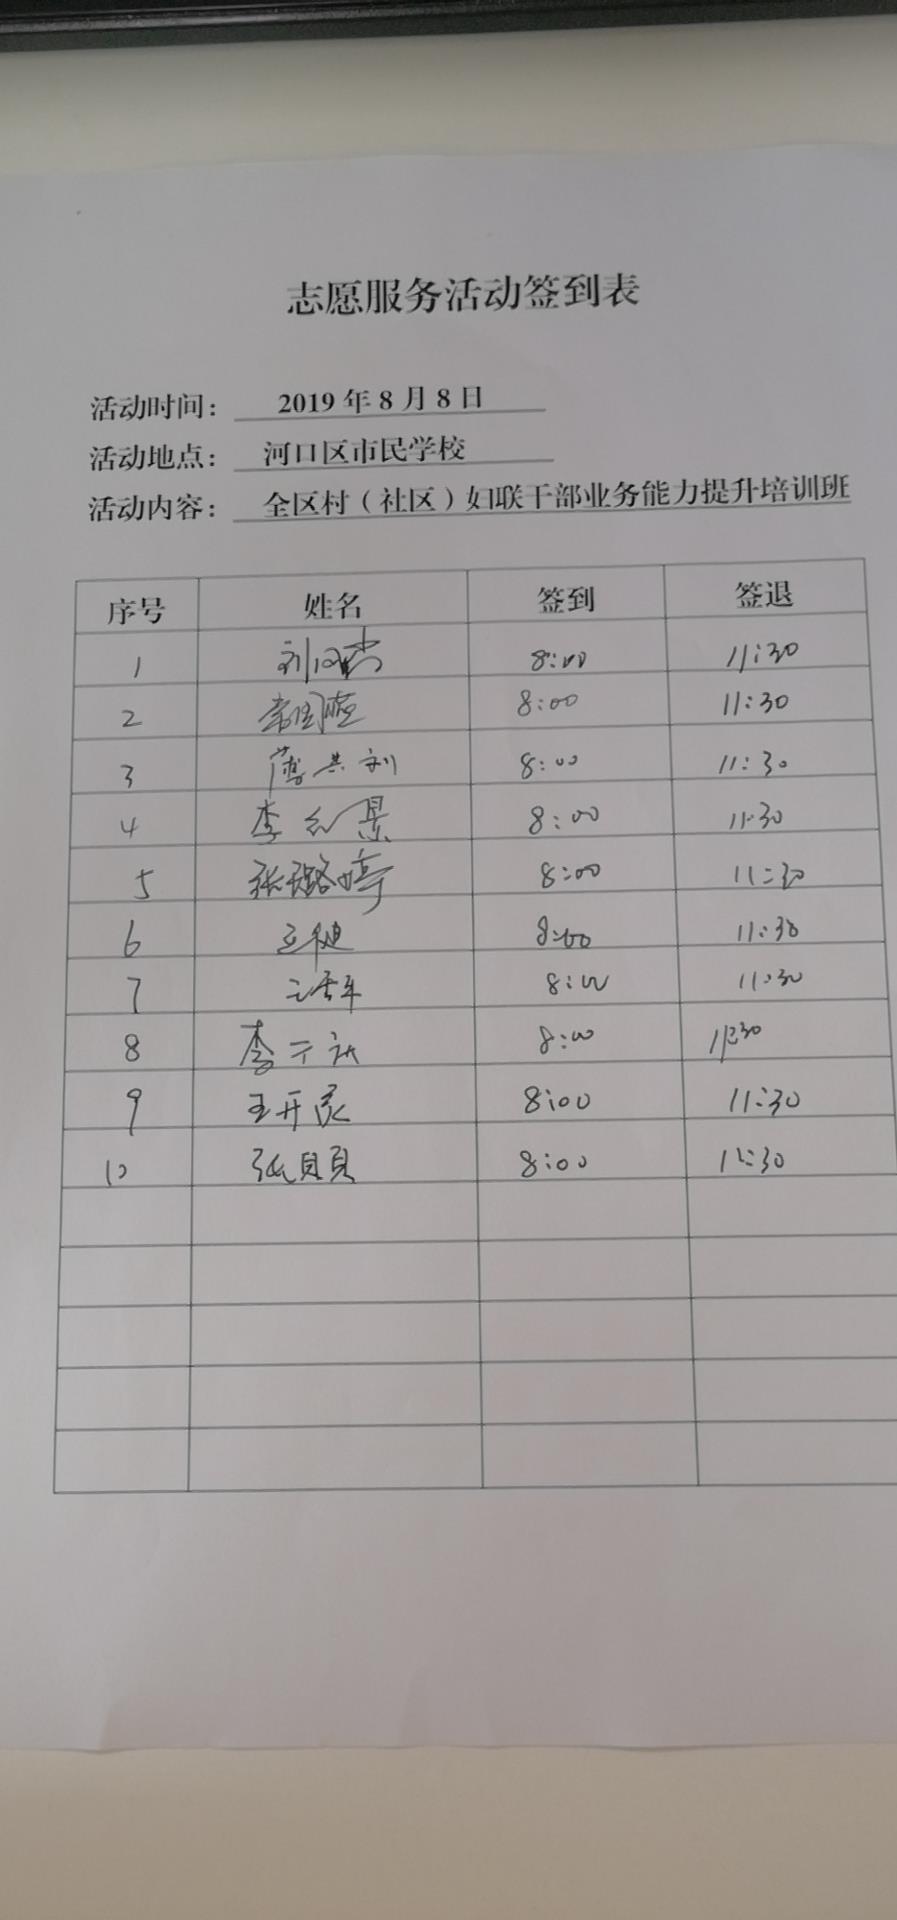 志愿服务活动签到表
活动时间： 2019 年 8 月 8 日
活动地点： 河口区市民学校
活动内容： 全区村（社区）妇联干部业务能力提升培训班
序号 姓名 签到 签退
1 8:00 11:30
2 8:00 11:30
3 8:00 11:30
4 李红景 8:00 11:30
5 张璐婷 8:00 11:30
6 8:00 11:30
7 8:00 11:30
8 8:00 11:30
9 8:00 11:30
10 张贝贝 8:00 11:30